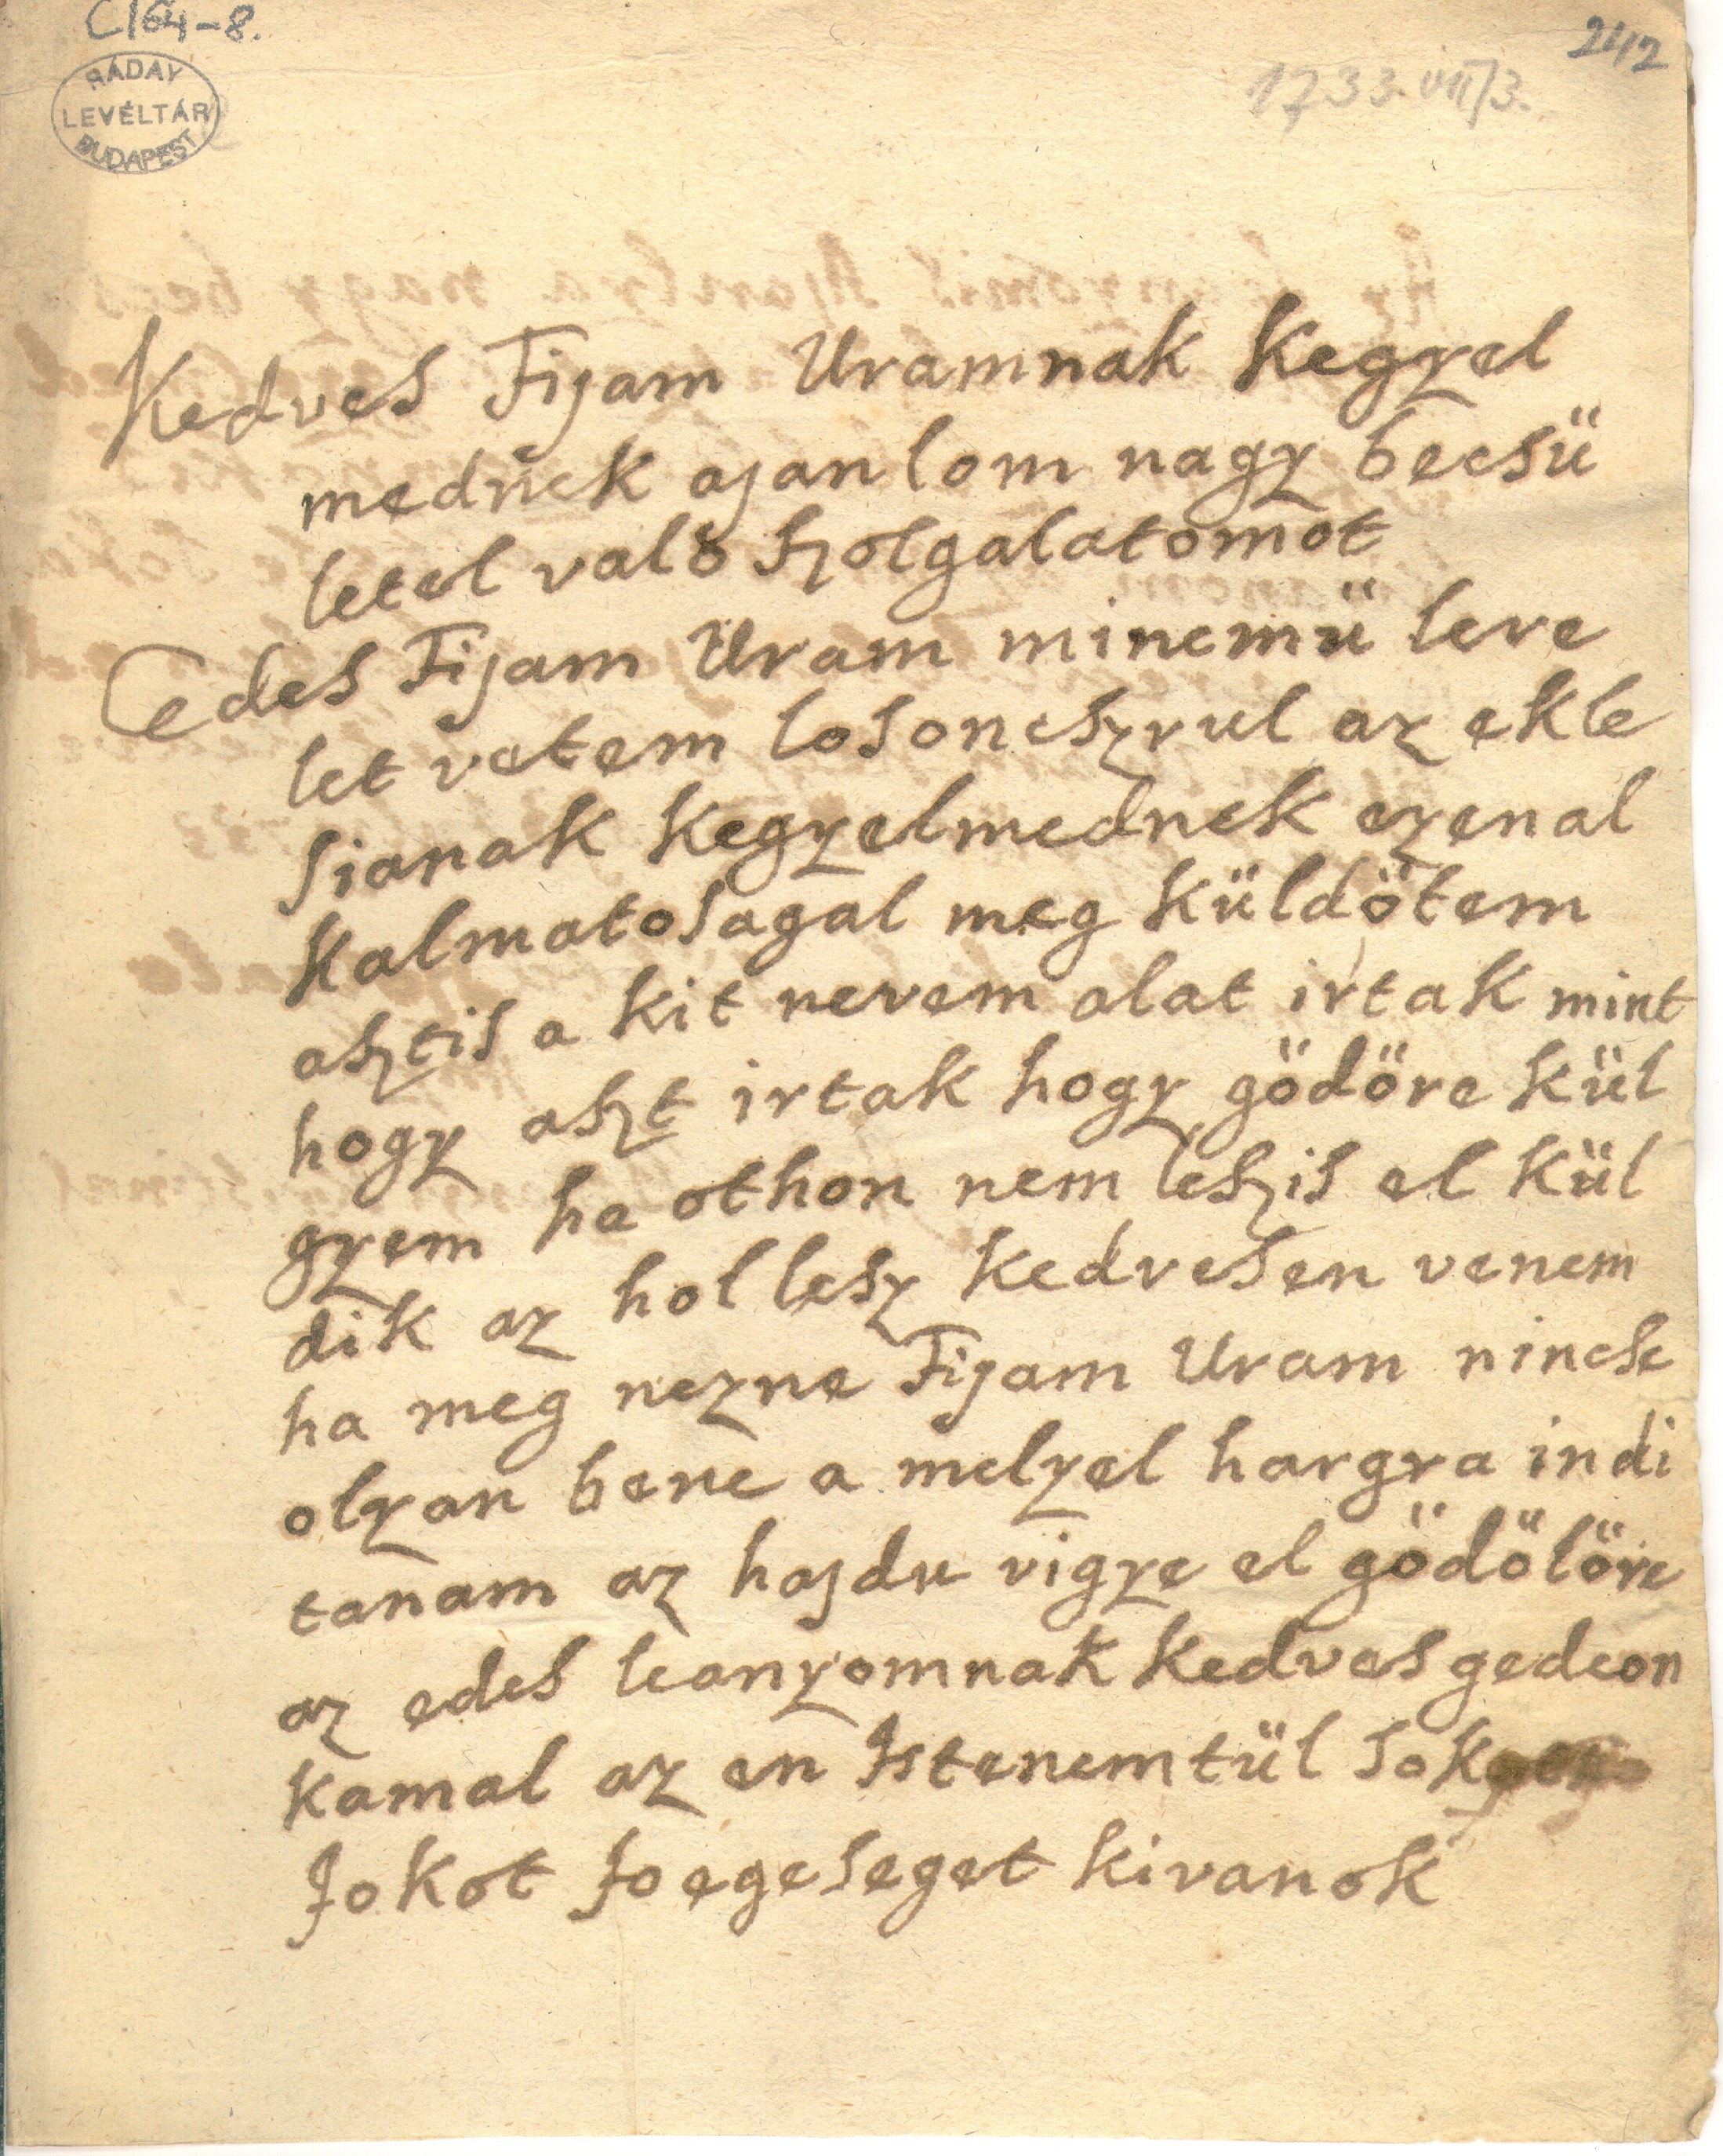 C/64-8.
242
RÁDAY
LEVÉLTÁR
BUDAPEST
1733. VII/3.
Kedves Fijam Uramnak Kegyel
mednek ajanlom nagy becsü
letel valo szolgalatomot
edes Fijam Uram minemü leve
let vetem losoncszrul az ekle
sianak Kegyelmednek ezenal
kalmatosagal meg küldötem
asztis a kit nevem alat irtak mint
hogy aszt irtak hogy gödöre kül
gyem ha othon nem leszis el kül
dik az hol lesz kedvesen venem
ha meg nezne Fijam Uram nincse
olyan bene a melyel hargra indi
tanam az hajdu vigye el gödölöre
az edes leanyomnak kedves gedeon
kamal az en Istenemtül sok
Jokot Jo egeseget kivanok